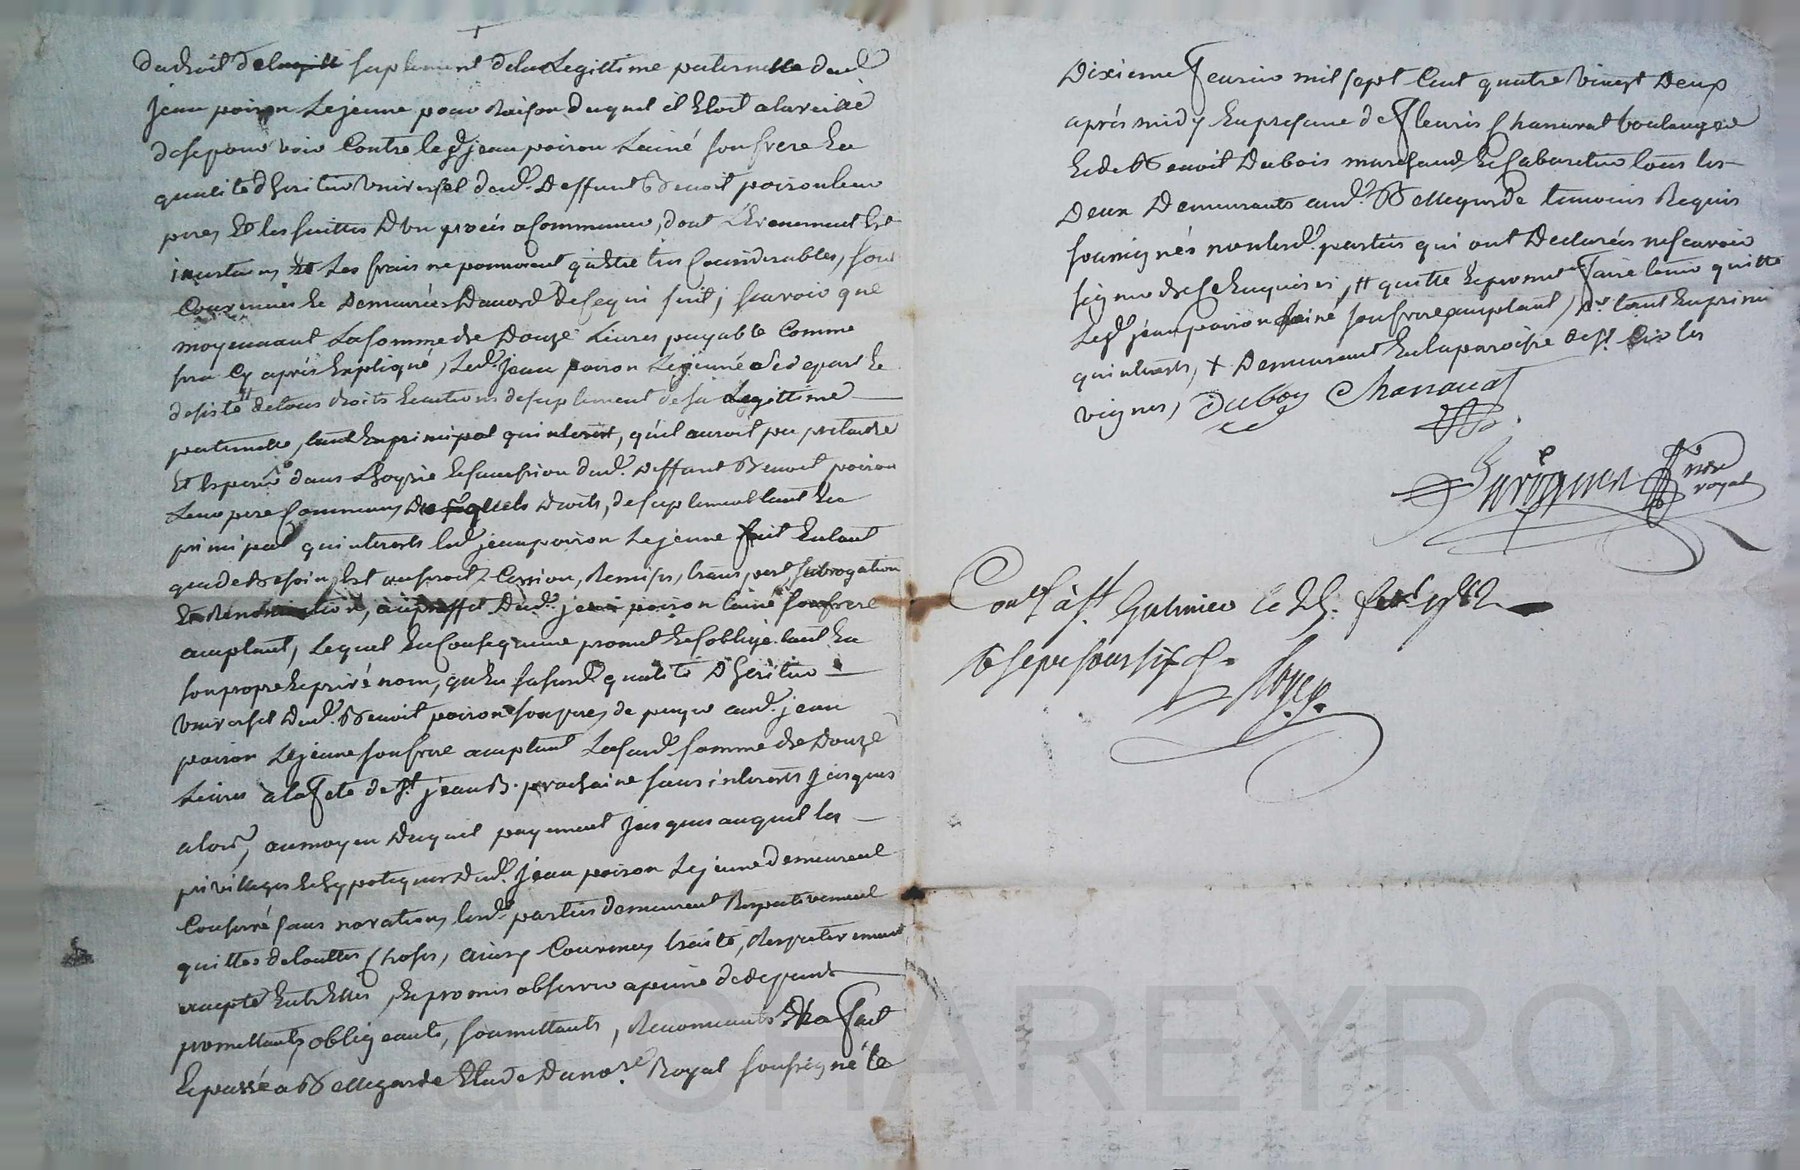 du droit de suplement de la Legittime paternelle dud.
jean poiron Lejeune pour Raison duquel il Etoit a la veille
de se pourvoir Contre led. jean poiron Lainé son frere En
qualité d'heritier universel dud. Deffunt Benoit poiron leur
pere, Et les suittes D'un procès a Commencer, dont L'Evenement Est
incertain, Et Les frais ne pouvoient qu'Etre très Considerables, sont
Convenües Et Demeurées Daccord de Ce qui suit; scavoir que
moyennant La somme de Douze Livres payable Comme
sera Cy après Expliqué, Led. jean poiron Lejeune se depart Et
desiste de tous droits Et actions de suplement de sa Legittime
paternelle, tant En principal qu'interest, qu'il auroit pu pretendre
Et Esperer dans L'hoyrie Et succession dud. Deffunt Benoit poiron
Leur pere Commun, Desquels Droits, de suplement tant En
principal qu'interests led. jean poiron Lejeune fait Entant
que de Besoin Est ou seroit Cession, Remise, transport, subrogation
Et Renonciation, au proffit Dud. jean poiron Lainé son frere
acceptant, Lequel En Consequence promet Et s'oblige tant En
son propre Et privé nom, qu'En sa susd. qualité D'heritier
universel Dud. Benoit poiron son pere, de payer aud. jean
poiron Lejeune son frere acceptant La susd. somme de Douze
Livres a la Fete de St. jean B. prochaine sans interests jusques
alors, au moyen Duquel payement jusques auquel les
privilleges Et hypoteques Dud. jean poiron Lejeune demeurent
Conservé sans novation, lesd. parties demeurent Respectivement
quittes de touttes Choses, ainsy Convenu, traité, Respectivement
accepté Entr'Elles, Et promis observer a peine de depens
promettants, obligeants, soumettants, Renonceants Eta Fait
Et passé a Bellegarde Etude Du nore. Royal soussigné le
Dixieme Fevrier mil sept Cent quatre vingt Deux
après midy En presence de Fleuris Chanavat boulanger
Et de Benoit Dubois marchand Et Cabaretier tous les
Deux Demeurants aud. Bellegarde temoins Requis
soussignés non lesd. parties qui ont Declarées ne scavoir
signer de Ce Enquises, Et quitte Et promet Faire tenir quitte
Led. jean poiron Lainé son frere acceptant, De tout En principal
qu'interests, + Demeurant En la paroisse de St.
vignes, Duboy Chanauat
nore
royal
Conlé à St. Galmier le 25. fevr. 1782